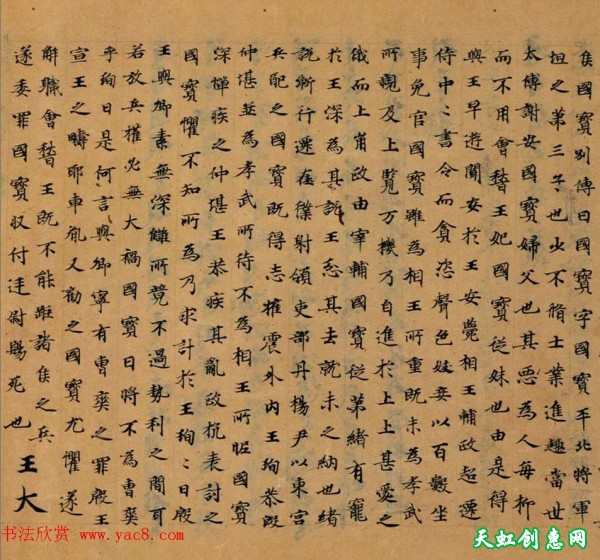 侯國寶別傳曰國寶字國寶平北將軍
坦之第三子也少不脩士業進趣當世
太傅謝安國寶婦父也其惡為人每抑
而不用會稽王妃國寶從妹也由是得
與王早遊間安於王安薨相王輔政超遷
侍中〻書令而貪恣聲色妓妾以百數坐
事免官國寶雖為相王所重既未為孝武
所親及上覽万機乃自進於上上甚愛之
俄而上崩政由宰輔國寶從弟緒有寵
於王深為其說王忿其去就未之納也緒
說漸行遷左僕射領吏部丹楊尹以東宮
兵配之國寶既得志權震外內王珣恭殷
仲堪並為孝武所待不為相王所昵國寶
深憚疾之仲堪王恭疾其亂政抗表討之
國寶懼不知所為乃求計於王珣〻曰殷
王與卿素無深讎所競不過勢利之間耳
若放兵權必無大禍國寶曰將不為曹爽
乎珣曰是何言與卿寧有曹爽之罪殷王
宣王之疇耶車胤又勸之國寶尤懼遂
解職會稽王既不能距諸侯之兵
遂委罪國寶収付廷尉賜死也 王大
书法欣赏 www.yac8.com
天虹创惠网